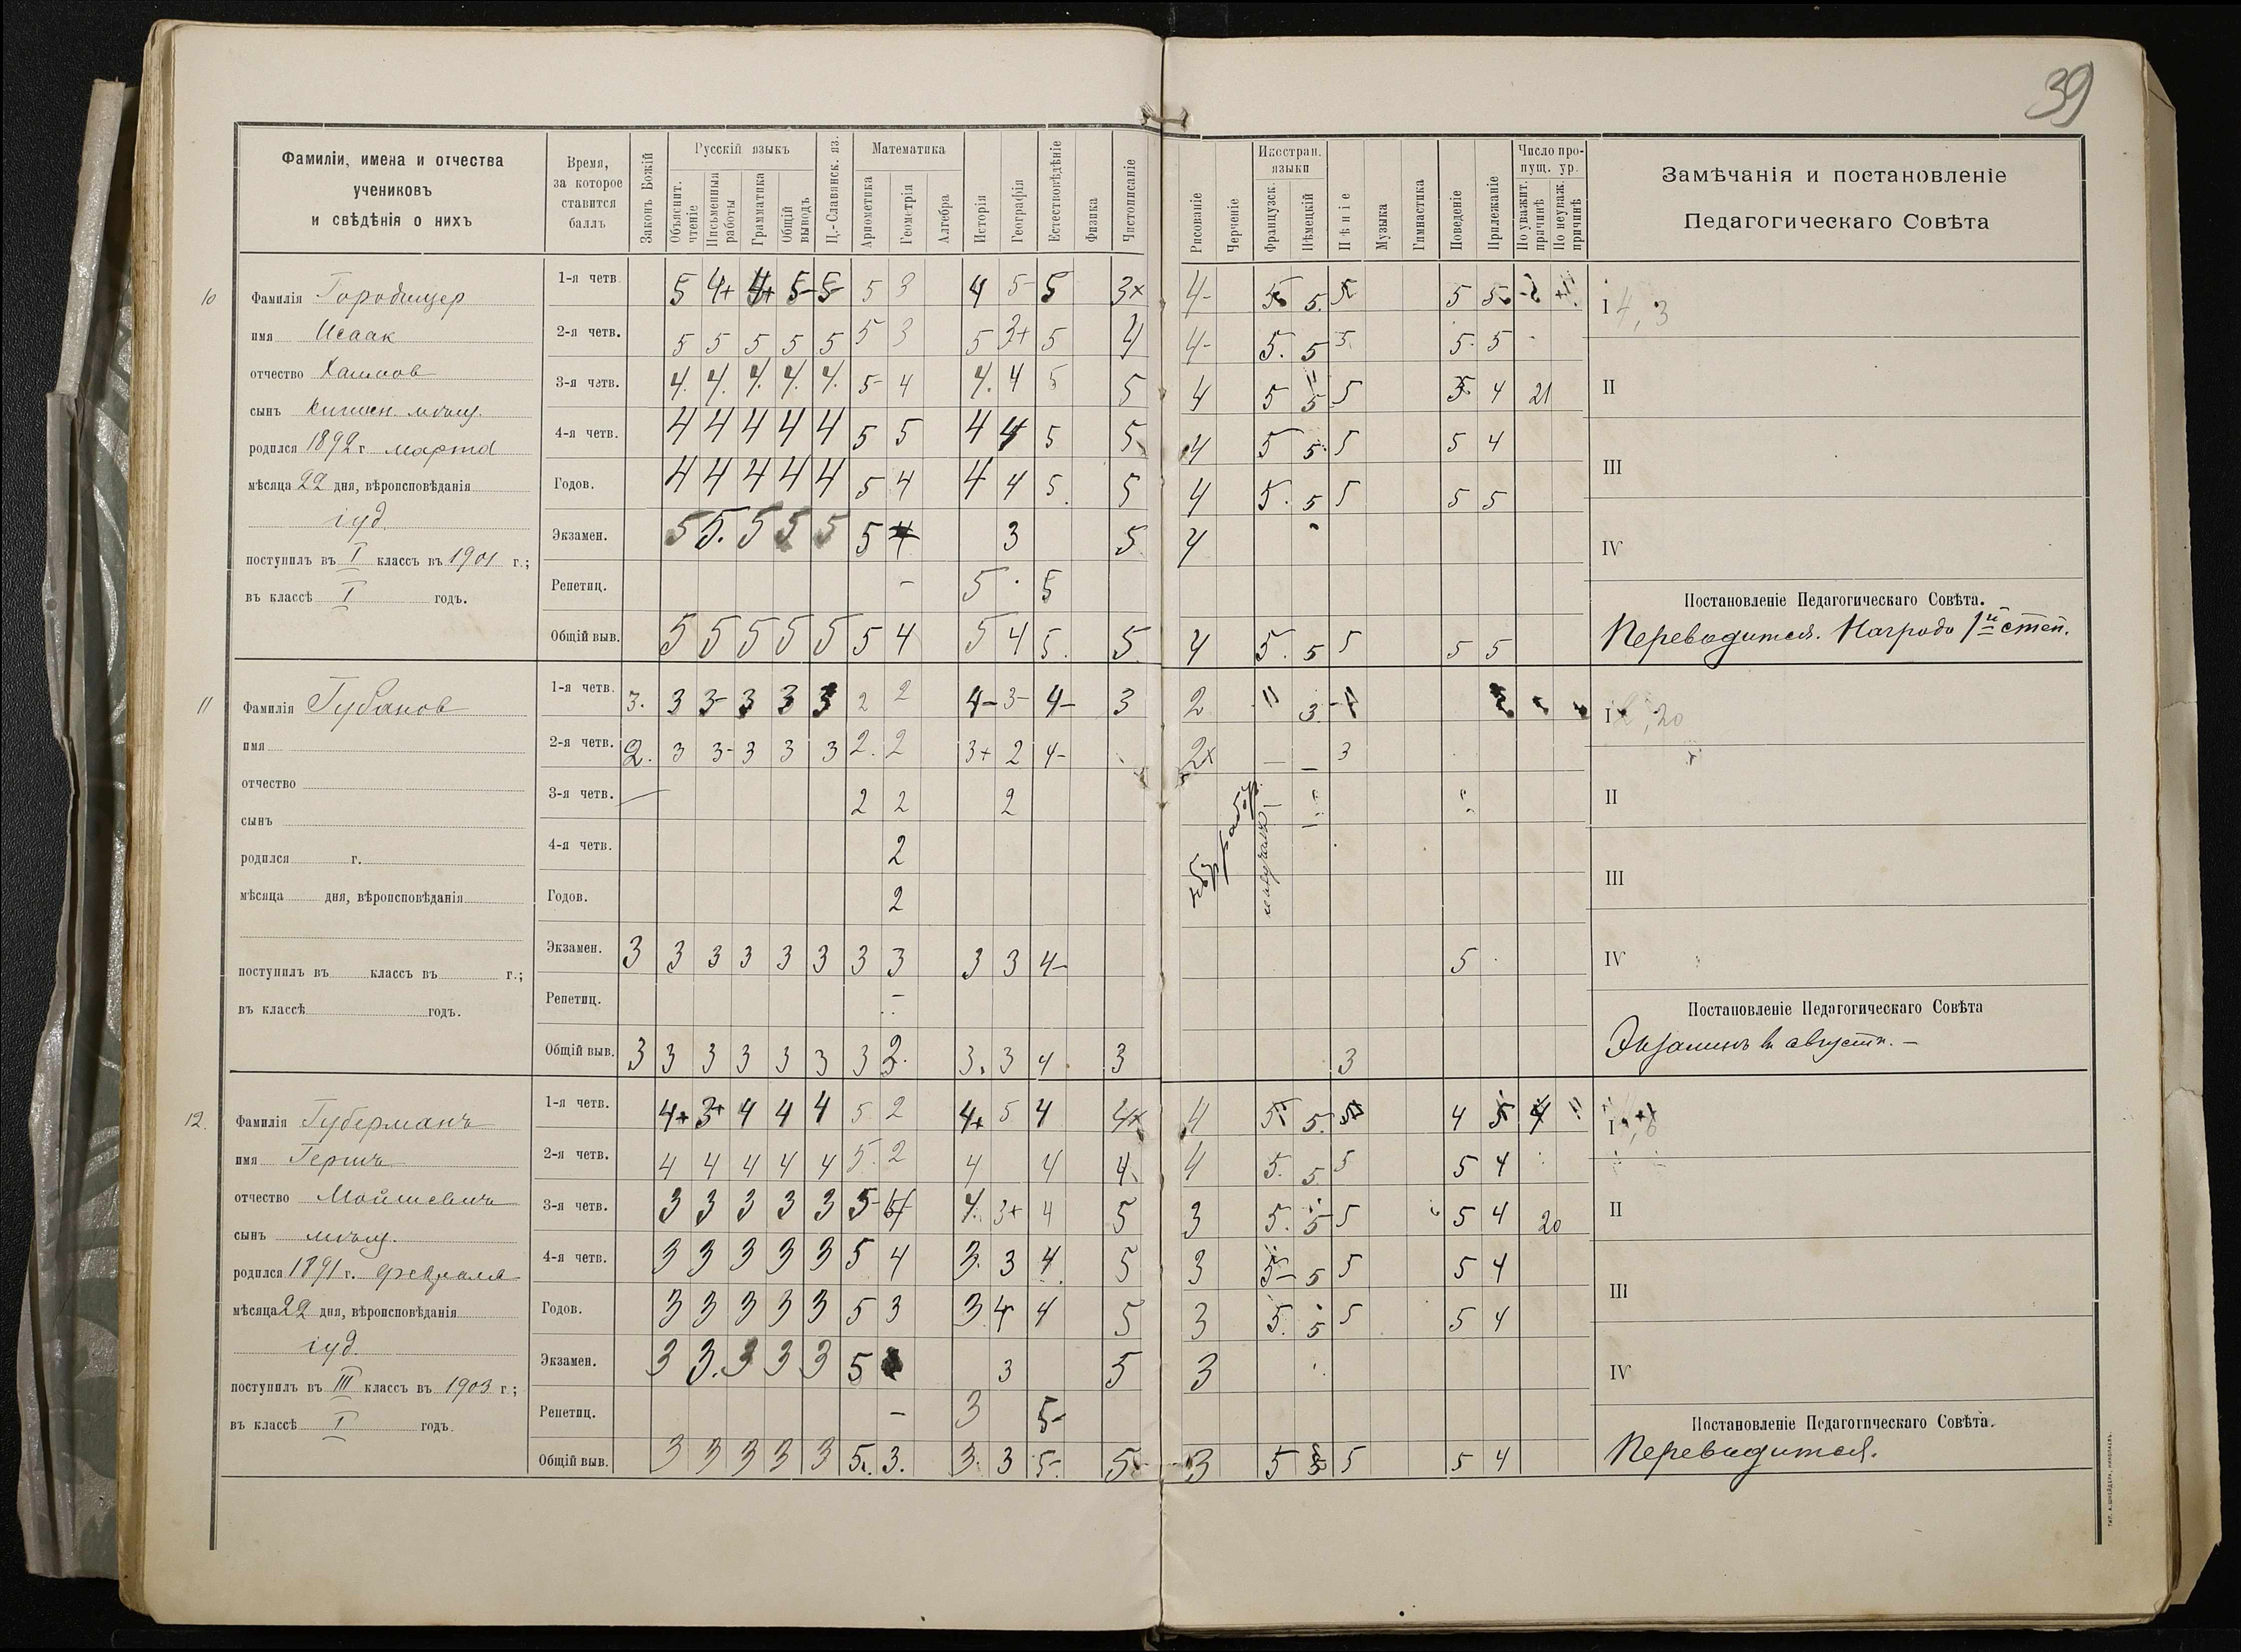 39
Фамиліи, имена и отчества
учениковъ
и свѣдѣнія о нихъ
Время,
за которое
ставится
баллъ
Законъ Божій
Русскій языкъ
Объяснит.
чтеніе
Письменныя
работы
Грамматика
Общій
выводъ
Ц.-Славянск. яз.
Математика
Ариѳметика
Геометрія
Алгебра
Исторія
Географія
Естествовѣдѣніе
Физика
Чистописаніе
Рисованіе
Черченіе
Иностран.
языки
Французск.
Нѣмецкій
Пѣніе
Музыка
Гимнастика
Поведеніе
Прилежаніе
Число про-
пущ. ур.
По уважит.
причинѣ
По неуваж.
причинѣ
Замѣчанія и постановленіе
Педагогическаго Совѣта
10
Фамилія Городищер
имя Исаак
отчество Хаимов
сынъ кишин. мѣщ.
родился 1892 г. марта
мѣсяца 22 дня, вѣроисповѣданія
іуд.
поступилъ въ I классъ въ 1901 г.;
въ классѣ I годъ.
1-я четв. 5 4+ 4+ 5- 5- 5 3 4 5- 5 3× 4- 5 5. 5 5 5
2-я четв. 5 5 5 5 5 5 3 5 3+ 5 4 4- 5. 5 3. 5. 5
3-я четв. 4. 4. 4. 4. 4. 5- 4 4. 4 5 5 4 5 5 5 5 4 21
4-я четв. 4 4 4 4 4 5 5 4 4 5 5 4 5 5. 5 5 4
Годов. 4 4 4 4 4 5 4 4 4 5. 5 4 5. 5 5 5 5
Экзамен. 5 5. 5 5 5 5 4 3 5 4
Репетиц. - 5 5
Общій выв. 5 5 5 5 5 5 4 5 4 5. 5 4 5. 5 5 5 5
I 4, 3
II
III
IV
Постановленіе Педагогическаго Совѣта.
Переводится. Награда 1й степ.
11
Фамилія Губанов
имя
отчество
сынъ
родился г.
мѣсяца дня, вѣроисповѣданія
поступилъ въ классъ въ г.;
въ классѣ годъ.
1-я четв. 3. 3 3- 3 3 3 2 2 4- 3- 4- 3 2 " 3
2-я четв. 2. 3 3- 3 3 3 2. 2 3+ 2 4- 2× — — 3
3-я четв. — 2 2 2
4-я четв. 2
Годов. 2
Экзамен. 3 3 3 3 3 3 3 3 3 3 4- 5
Репетиц. -
Общій выв. 3 3 3 3 3 3 3 2. 3. 3 4 3 3
I , 20
II
III
IV
Постановленіе Педагогическаго Совѣта
Экзаменъ въ августѣ. —
12.
Фамилія Губерманъ
имя Гершъ
отчество Мойшевичъ
сынъ мѣщ.
родился 1891 г. февраля
мѣсяца 22 дня, вѣроисповѣданія
іуд.
поступилъ въ III классъ въ 1903 г.;
въ классѣ I годъ.
1-я четв. 4+ 3+ 4 4 4 5 2 4+ 5 4 4× 4 5 5. 5 4 5 4 "
2-я четв. 4 4 4 4 4 5. 2 4 4 4. 4 5. 5. 5 5 4
3-я четв. 3 3 3 3 3 5- 4 4. 3+ 4 5 3 5. 5 5 5 4 20
4-я четв. 3 3 3 3 3 5 4 3. 3 4. 5 3 5- 5 5 5 4
Годов. 3 3 3 3 3 5 3 3 4 4 5 3 5. 5 5 5 4
Экзамен. 3 3. 3 3 3 5 3 5 3
Репетиц. - 3 5-
Общій выв. 3 3 3 3 3 5. 3. 3. 3 5-. 5 3 5 5 5 5 4
I
II
III
IV
Постановленіе Педагогическаго Совѣта.
Переводится.
ТИП. А. ШНЕЙДЕРА, НИКОЛАЕВЪ.